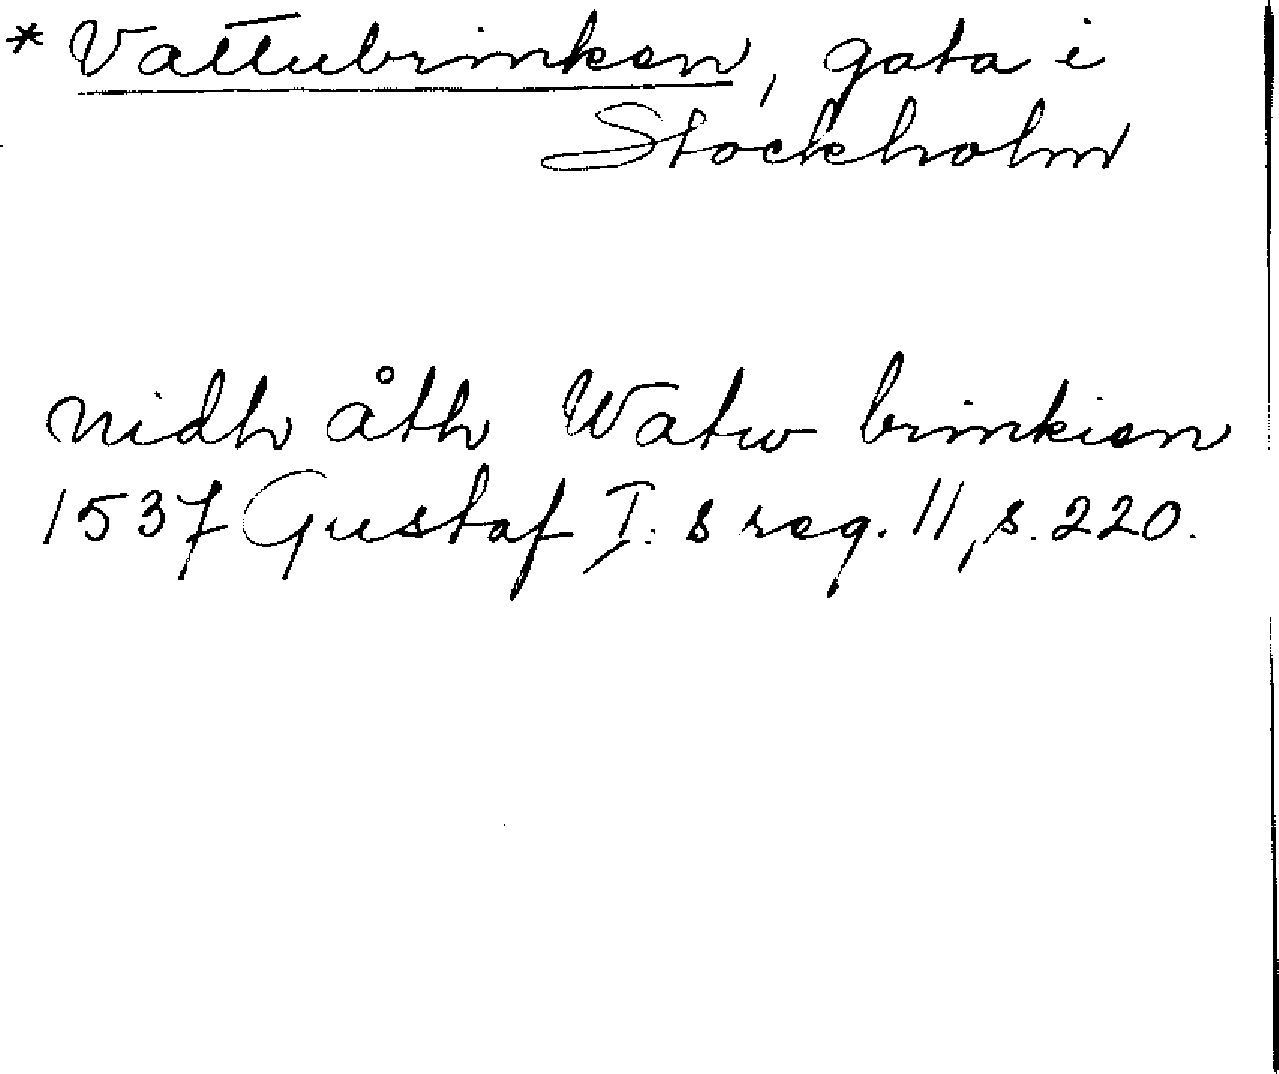 * Vattubrinken, gata i
Stockholm
nidh åth Watw brinkien
1537 Gustaf I:s reg. 11, s. 220.